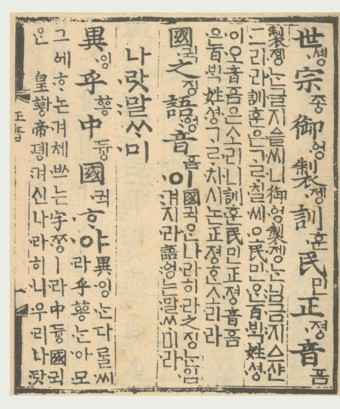 世솅宗종御엉製졩訓훈民민正졍音ᅙᅳᆷ
製졩는글지ᅀᅳᆯ씨니御엉製졩는님금지ᅀᅳ샨
그리라訓훈은ᄀᆞᄅᆞ칠씨오民민ᄋᆞᆫ百ᄇᆡᆨ姓셩
이오音ᅙᅳᆷ은소리니訓훈民민正졍音ᅙᅳᆷ
은百ᄇᆡᆨ姓셩ᄀᆞᄅᆞ치시논正졍ᄒᆞᆫ소리라
國귁之징語ᅌᅥᆼ音ᅙᅳᆷ이
國귁ᄋᆞᆫ나라히라之징ᄂᆞᆫ입
겨지라語ᅌᅥᆼ는말ᄊᆞ미라
나랏말ᄊᆞ미
異잉乎ᅘᅩᆼ中듕國귁ᄒᆞ야
異잉ᄂᆞᆫ다ᄅᆞᆯ씨
라乎ᅘᅩᆼᄂᆞᆫ아모
그ᅌᅦᄒᆞ논겨체ᄡᅳ는字ᄍᆞᆼㅣ라中듕國귁
ᄋᆞᆫ皇ᅘᅪᆼ帝뎽겨신나라히니우리나랏
正音